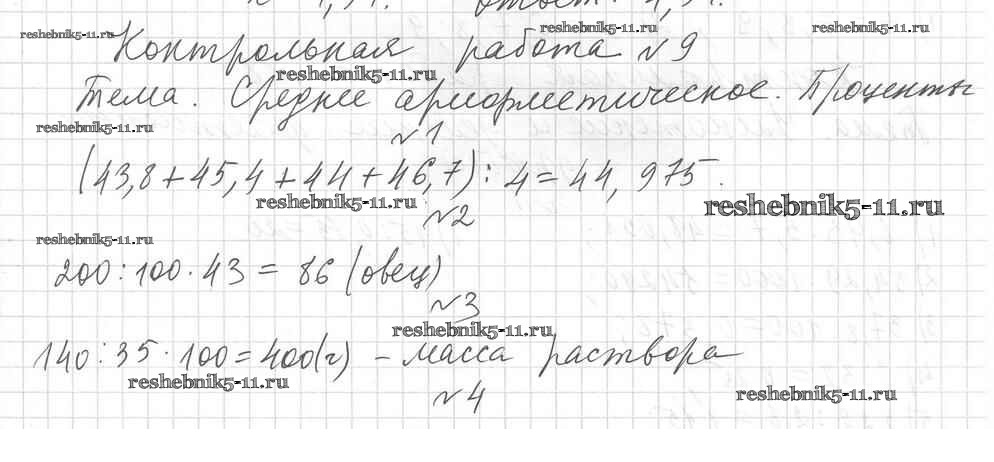 reshebnik5-11.ru reshebnik5-11.ru reshebnik5-11.ru
Контрольная работа №9
reshebnik5-11.ru
Тема. Среднее арифметическое. Проценты
reshebnik5-11.ru
№1
(43,8+45,4+44+46,7):4=44,975.
reshebnik5-11.ru reshebnik5-11.ru
№2
reshebnik5-11.ru
200:100·43=86 (овец)
№3
reshebnik5-11.ru
140:35·100=400(г) - масса раствора
reshebnik5-11.ru reshebnik5-11.ru
№4